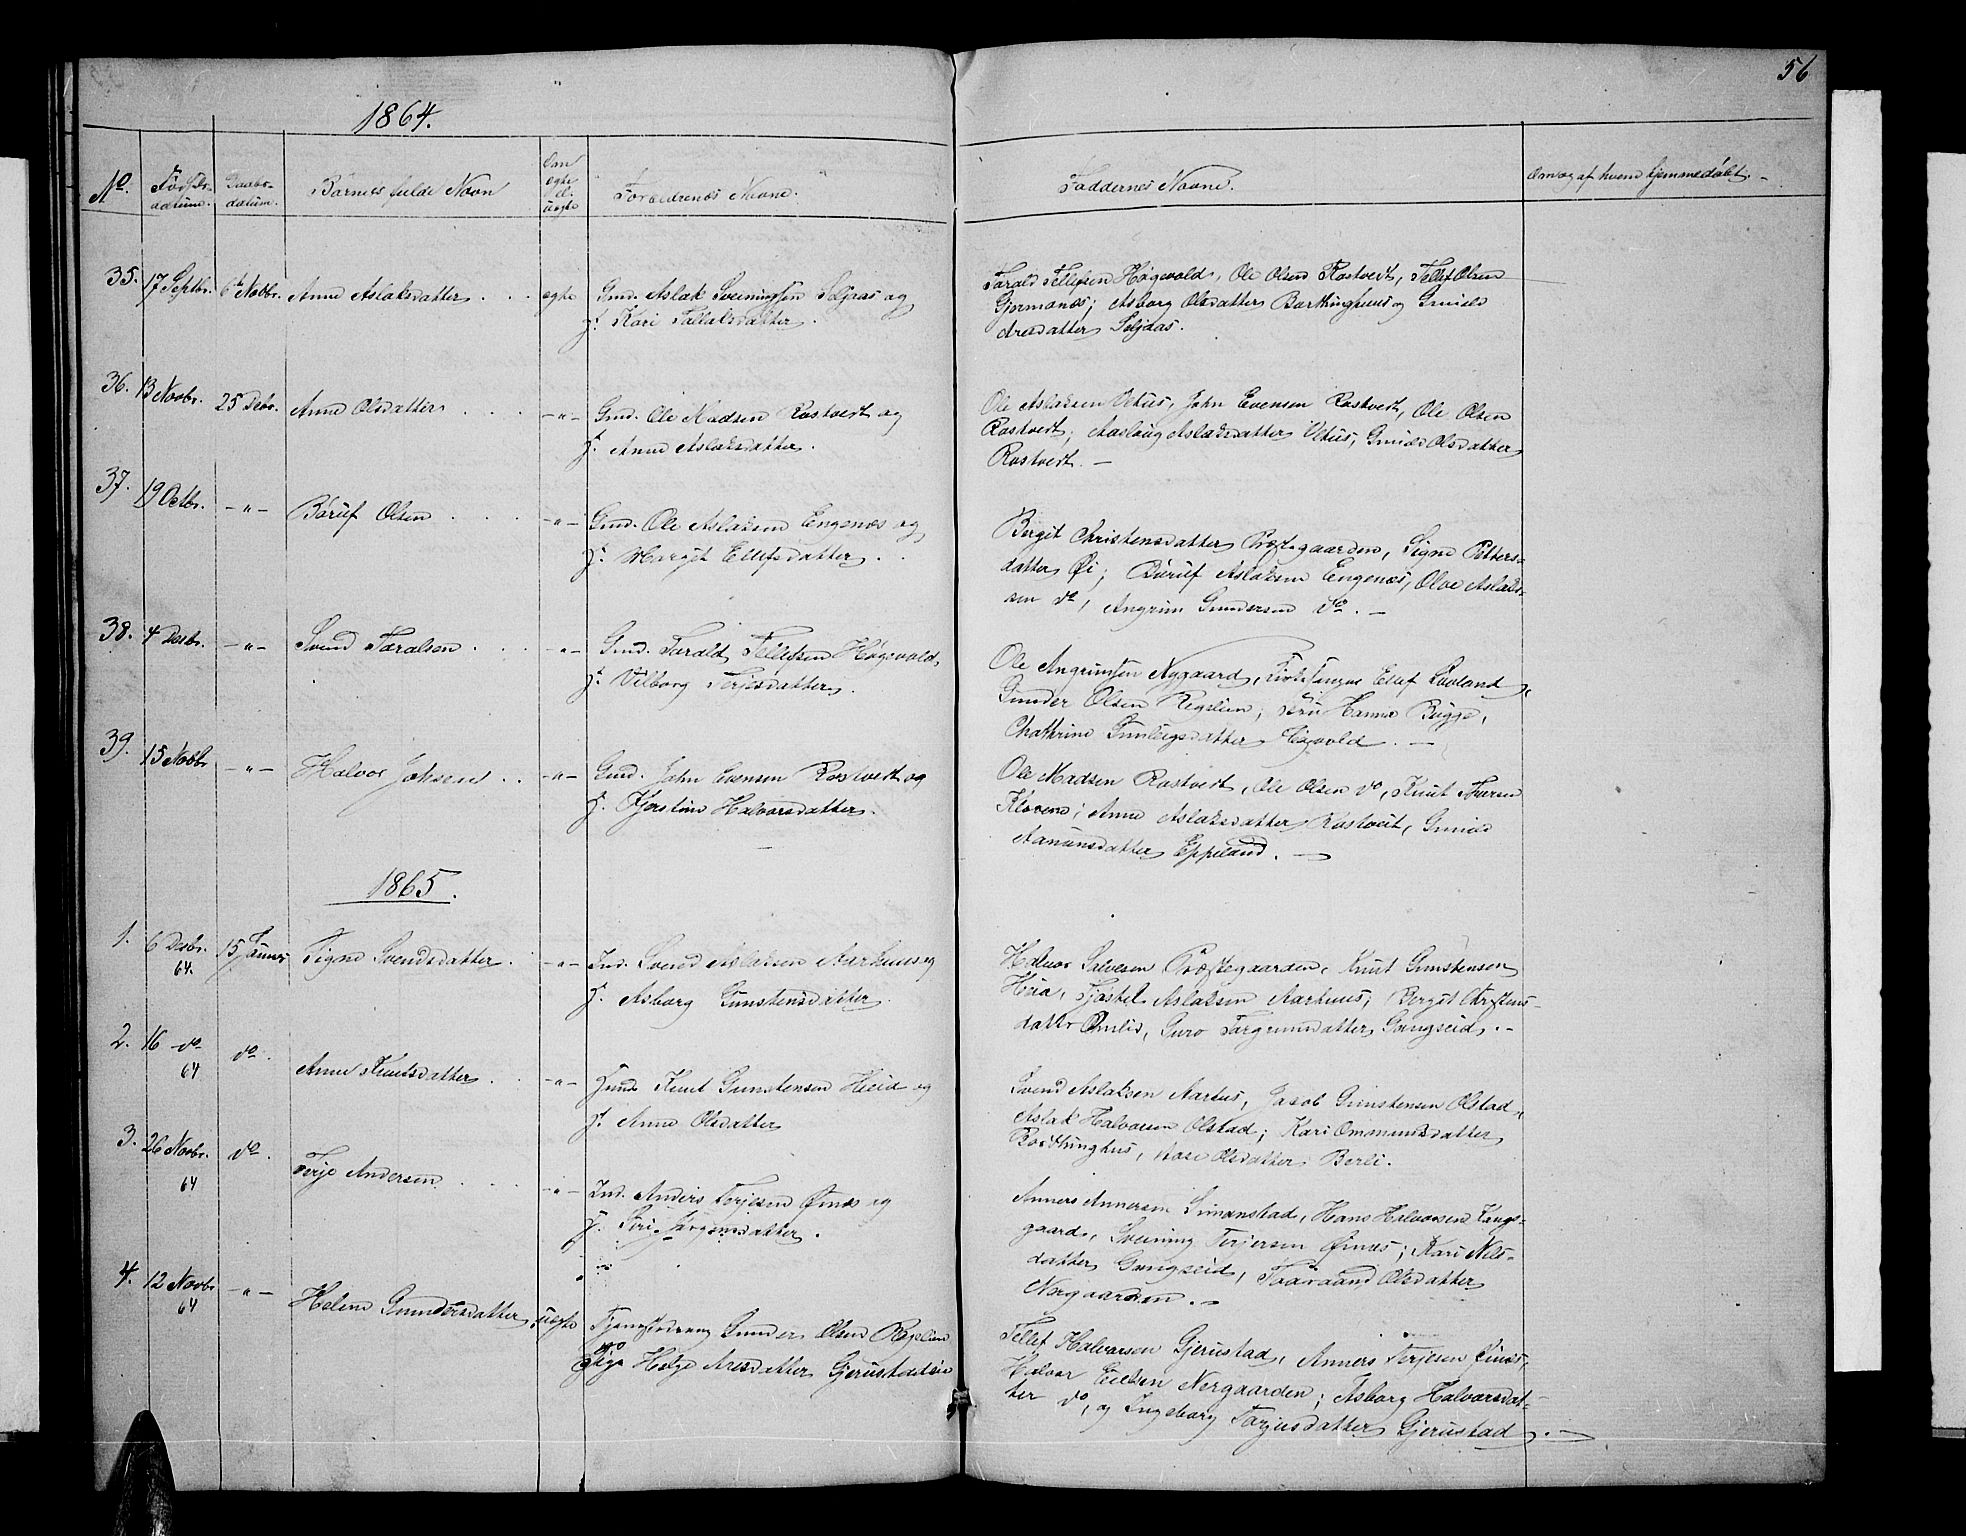 56
1864.
No. Fødsels- Daabs- Barnets fulde Navn Om Forældrenes Navne. Faddernes Navne. Om og af hvem hjemmedøbt. -
datum. datum. ægte el. uægte
35. 17 Septbr. 6te Novbr. Anne Aslaksdatter . . . ægte Gmd. Aslak Sveinungsen Seljaas og
f. Kari Tallaksdatter.
Tarald Tellefsen Høgevold, Ole Olsen Rostveit, Tellef Olsen
Gjermanæs; Asborg Olsdatter Barthinghuus og Gunild
Aresdatter Seljaas.
36. 13 Novbr. 25 Debr. Anne Olsdatter . . . . -"- Gmd. Ole Madsen Rostveit og
f. Anne Aslaksdatter.
Ole Aslaksen Vehus, John Evensen Rostveit, Ole Olsen
Rostveit; Aaslaug Aslaksdatter Vehus, Gunild Olsdatter
Rostveit. -
37. 19 Octbr. -"- Børuf Olsen . . . . -"- Gmd. Ole Aslaksen Engenæs og
f. Margit Ellefsdatter . .
Bergit Christensdatter Præstegaarden, Signe Petters-
datter Øi; Børuf Aslaksen Engenæs, Olve Aslak-
sen do, Angrim Gundersen do. -
38. 4 Decbr. -"- Svend Taralsen . . . -"- Gmd. Tarald Tellefsen Høgevold,
f. Vilborg Terjesdatter.
Ole Angrimsen Nygaard, Ellef Lavland,
Gunder Olsen Regelien; Hanna Bugge,
Chathrine Gunlugsdatter Høgevold. -
39. 15 Novbr -"- Halvor Johnsen . . -"- Gmd. John Evensen Rostveit og
f. Kjerstine Halvorsdatter.
Ole Madsen Rostveit, Ole Olsen do, Knut Iversen
Klovene; Anne Aslaksdatter Rostveit, Gunild
Aanunsdatter Eppeland. -
1865.
1. 6 Decbr. 64. 15 Januar Signe Svendsdatter . . -"- Ind. Svend Aslaksen Aarhuus og
f. Asborg Gunstensdatter.
Halvor Salvesen Præstegaarden, Knut Gunstensen
Heia, Tjøstel Aslaksen Aarhuus; Bergit Christens-
datter Omlid, Guro Torgrimsdatter Gangseid. -
2. 16 do 64 do. Anne Knutsdatter . . -"- Knut Gunstensen Heia og
f. Anne Olsdatter
Svend Aslaksen Aarhus, Jacob Gunstensen Olstad,
Aslak Halvorsen Olstad; Kari Ommundsdatter
Barthinghus, Aase Olsdatter Berli.
3. 26 Novbr. 64 do. Terje Andersen . . . . -"- Ind. Anders Terjesen Øinæs og
f. Siri Jørgensdatter.
Anners Annersen Simonstad, Hans Halvorsen Langs-
gaard, Sveinung Terjesen Øinæs; Kari Nils-
datter Gangseid, Taaraand Olsdatter
Nergaarden. -
4. 12 Novbr 64 -"- Helene Gundersdatter uægte Tjenestedreng Gunder Olsen Regelien
Pige Helge Aresdatter Gjerustadlia
Tellef Halvorsen Gjerustad, Anners Terjesen Øinæs,
Halvor Eielsen Nergaarden; Asborg Halvorsdat-
ter do, og Ingeborg Tarjusdatter Gjerustad. -